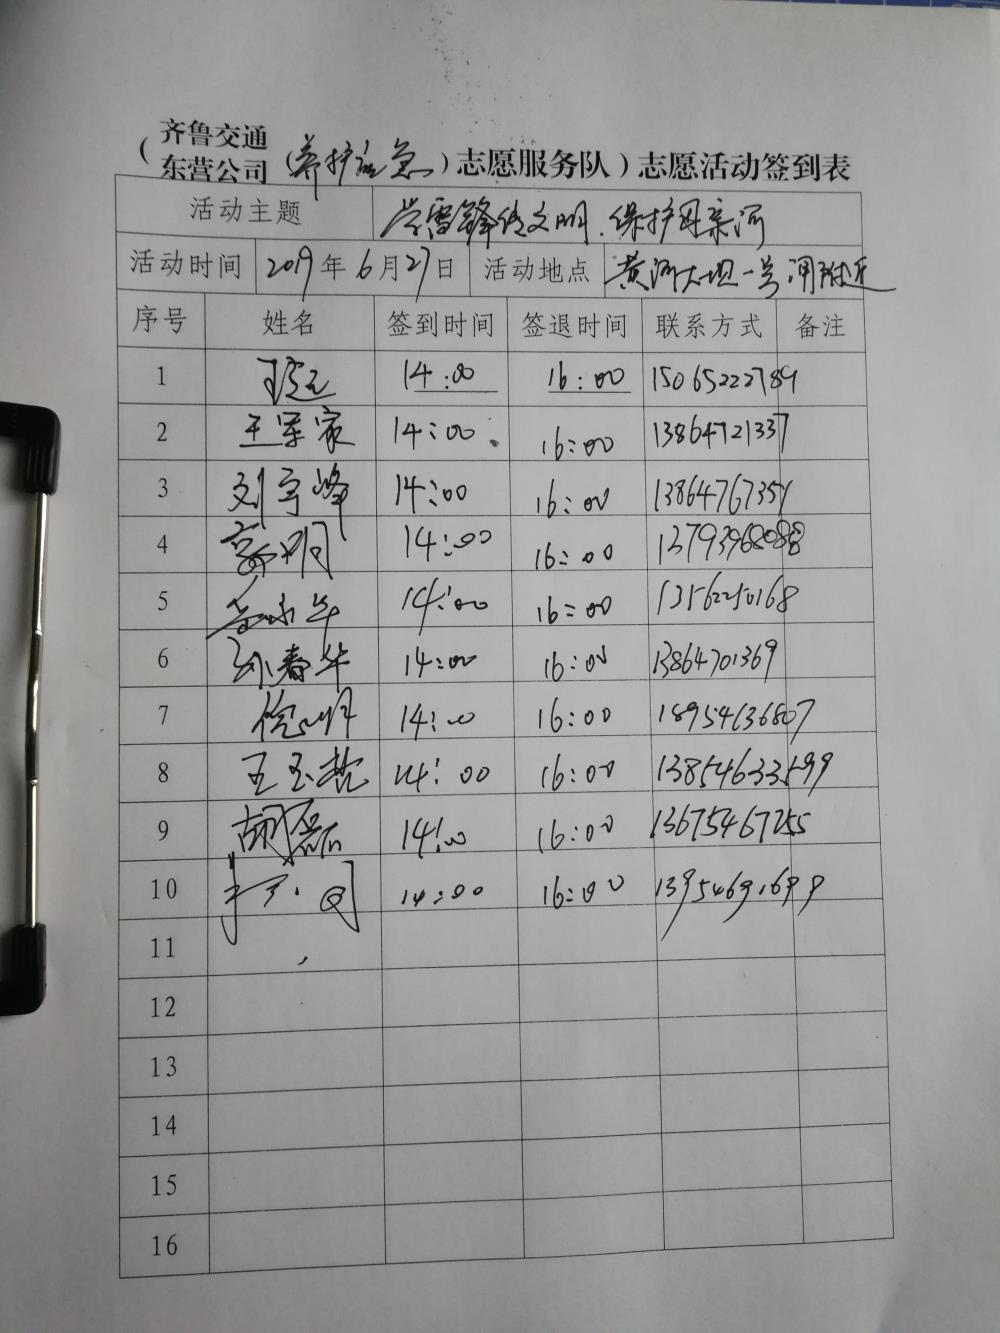 齐鲁交通
东营公司
(养护应急)志愿服务队)志愿活动签到表
活动主题 学雷锋传文明.保护母亲河
活动时间 2019年6月27日 活动地点 黄河大坝一号闸附近
序号 姓名 签到时间 签退时间 联系方式 备注
1 14:00 16:00 15065222789
2 王军家 14:00 16:00 13864721337
3 刘宇峰 14:00 16:00 13864767359
4 郭明 14:00 16:00 13793968088
5 14:00 16:00 13562250168
6 孙春华 14:00 16:00 13864701369
7 14:00 16:00 18954636807
8 14:00 16:00 13854633599
9 胡磊 14:00 16:00 13675467255
10 14:00 16:00
11
12
13
14
15
16